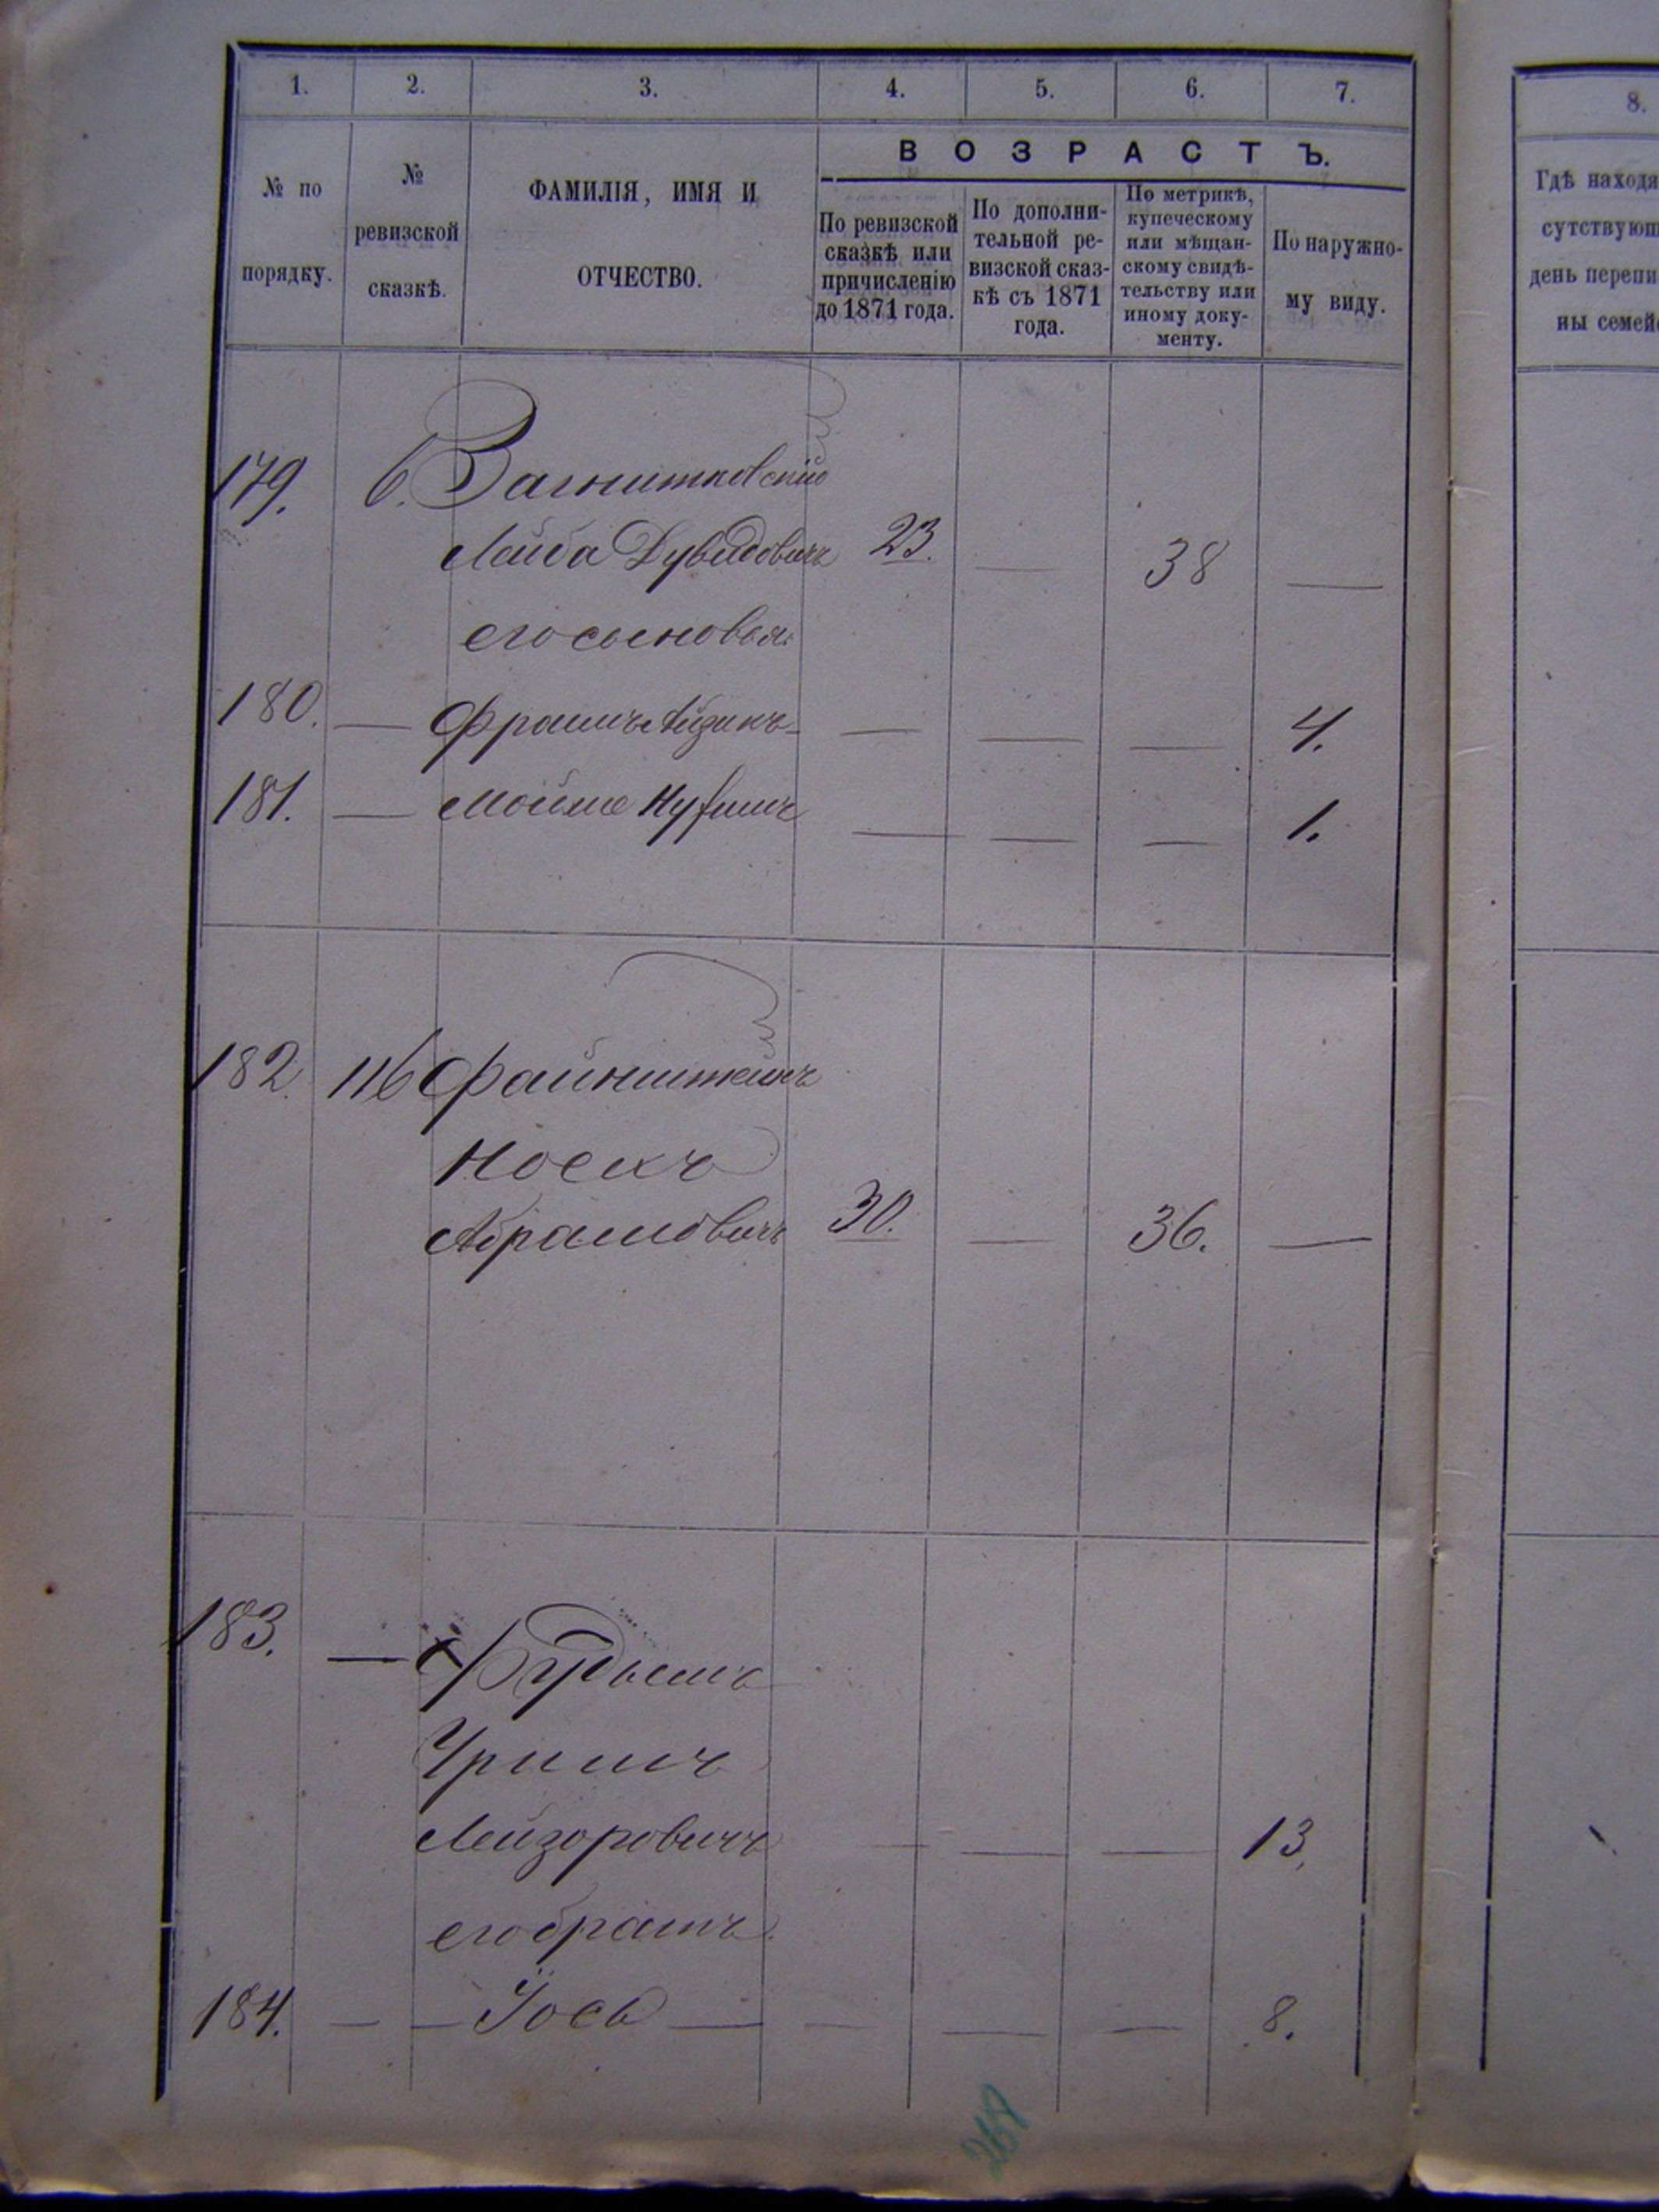 1. 2. 3. 4. 5. 6. 7.
№ по порядку.
№ ревизской сказкѣ.
ФАМИЛІЯ, ИМЯ И ОТЧЕСТВО.
ВОЗРАСТЪ.
По ревизской сказкѣ или причисленію до 1871 года.
По дополнительной ревизской сказкѣ съ 1871 года.
По метрикѣ, купеческому или мѣщанскому свидѣтельству или иному документу.
По наружному виду.
179. 6. Загнитковскій
Лейба Дувидовичъ 23. — 38 —
его сыновья
180. — Фроимъ Айзикъ — — — 4.
181. — Мойше — — — 1.
182. 116 Файнштейнъ
Носихъ
Абрамовичъ 30. — 36. —
183. —
Уришъ
Лейзоровичъ — — — 13.
его братъ
184. — — Іось — — — — 8.
8.
Гдѣ находя
сутствующ
день перепи
ны семей